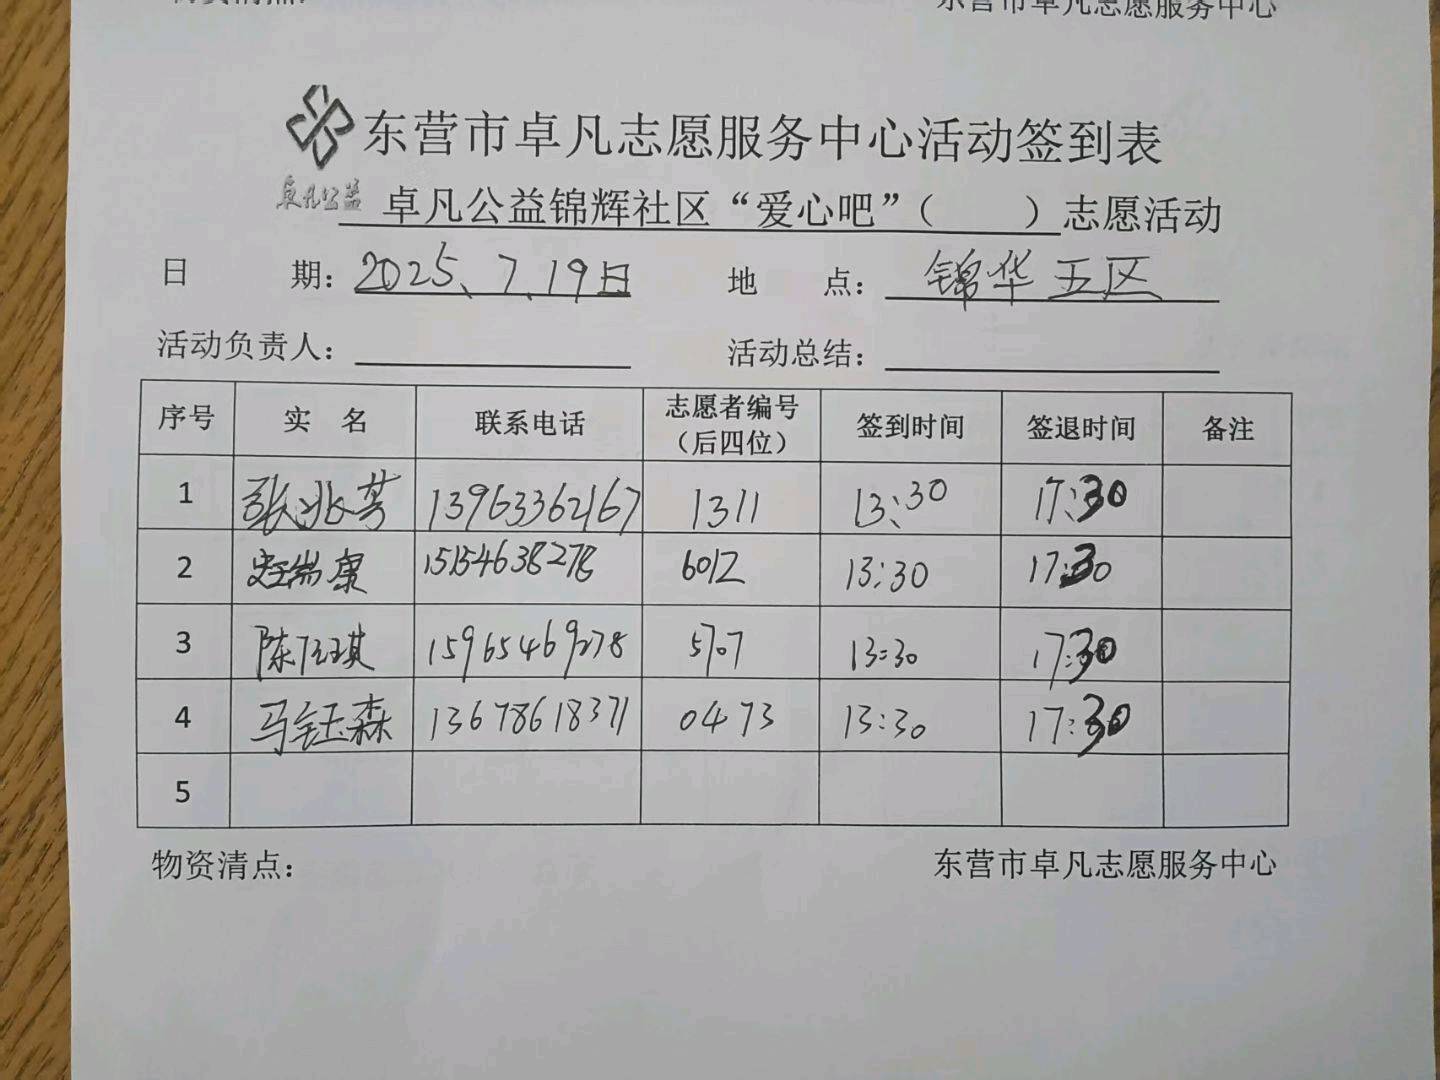 东营市卓凡志愿服务中心
东营市卓凡志愿服务中心活动签到表
卓凡公益
卓凡公益锦辉社区“爱心吧”（ ）志愿活动
日 期：2025、7、19日 地 点：锦华五区
活动负责人： 活动总结：
序号 实 名 联系电话 志愿者编号（后四位） 签到时间 签退时间 备注
1 张兆芳 13963362167 1311 13:30 17:30
2 瑞康 15154638278 6012 13:30 17:30
3 陈琪 15965469278 5707 13:30 17:30
4 马钰森 13678618371 0473 13:30 17:30
5
物资清点： 东营市卓凡志愿服务中心